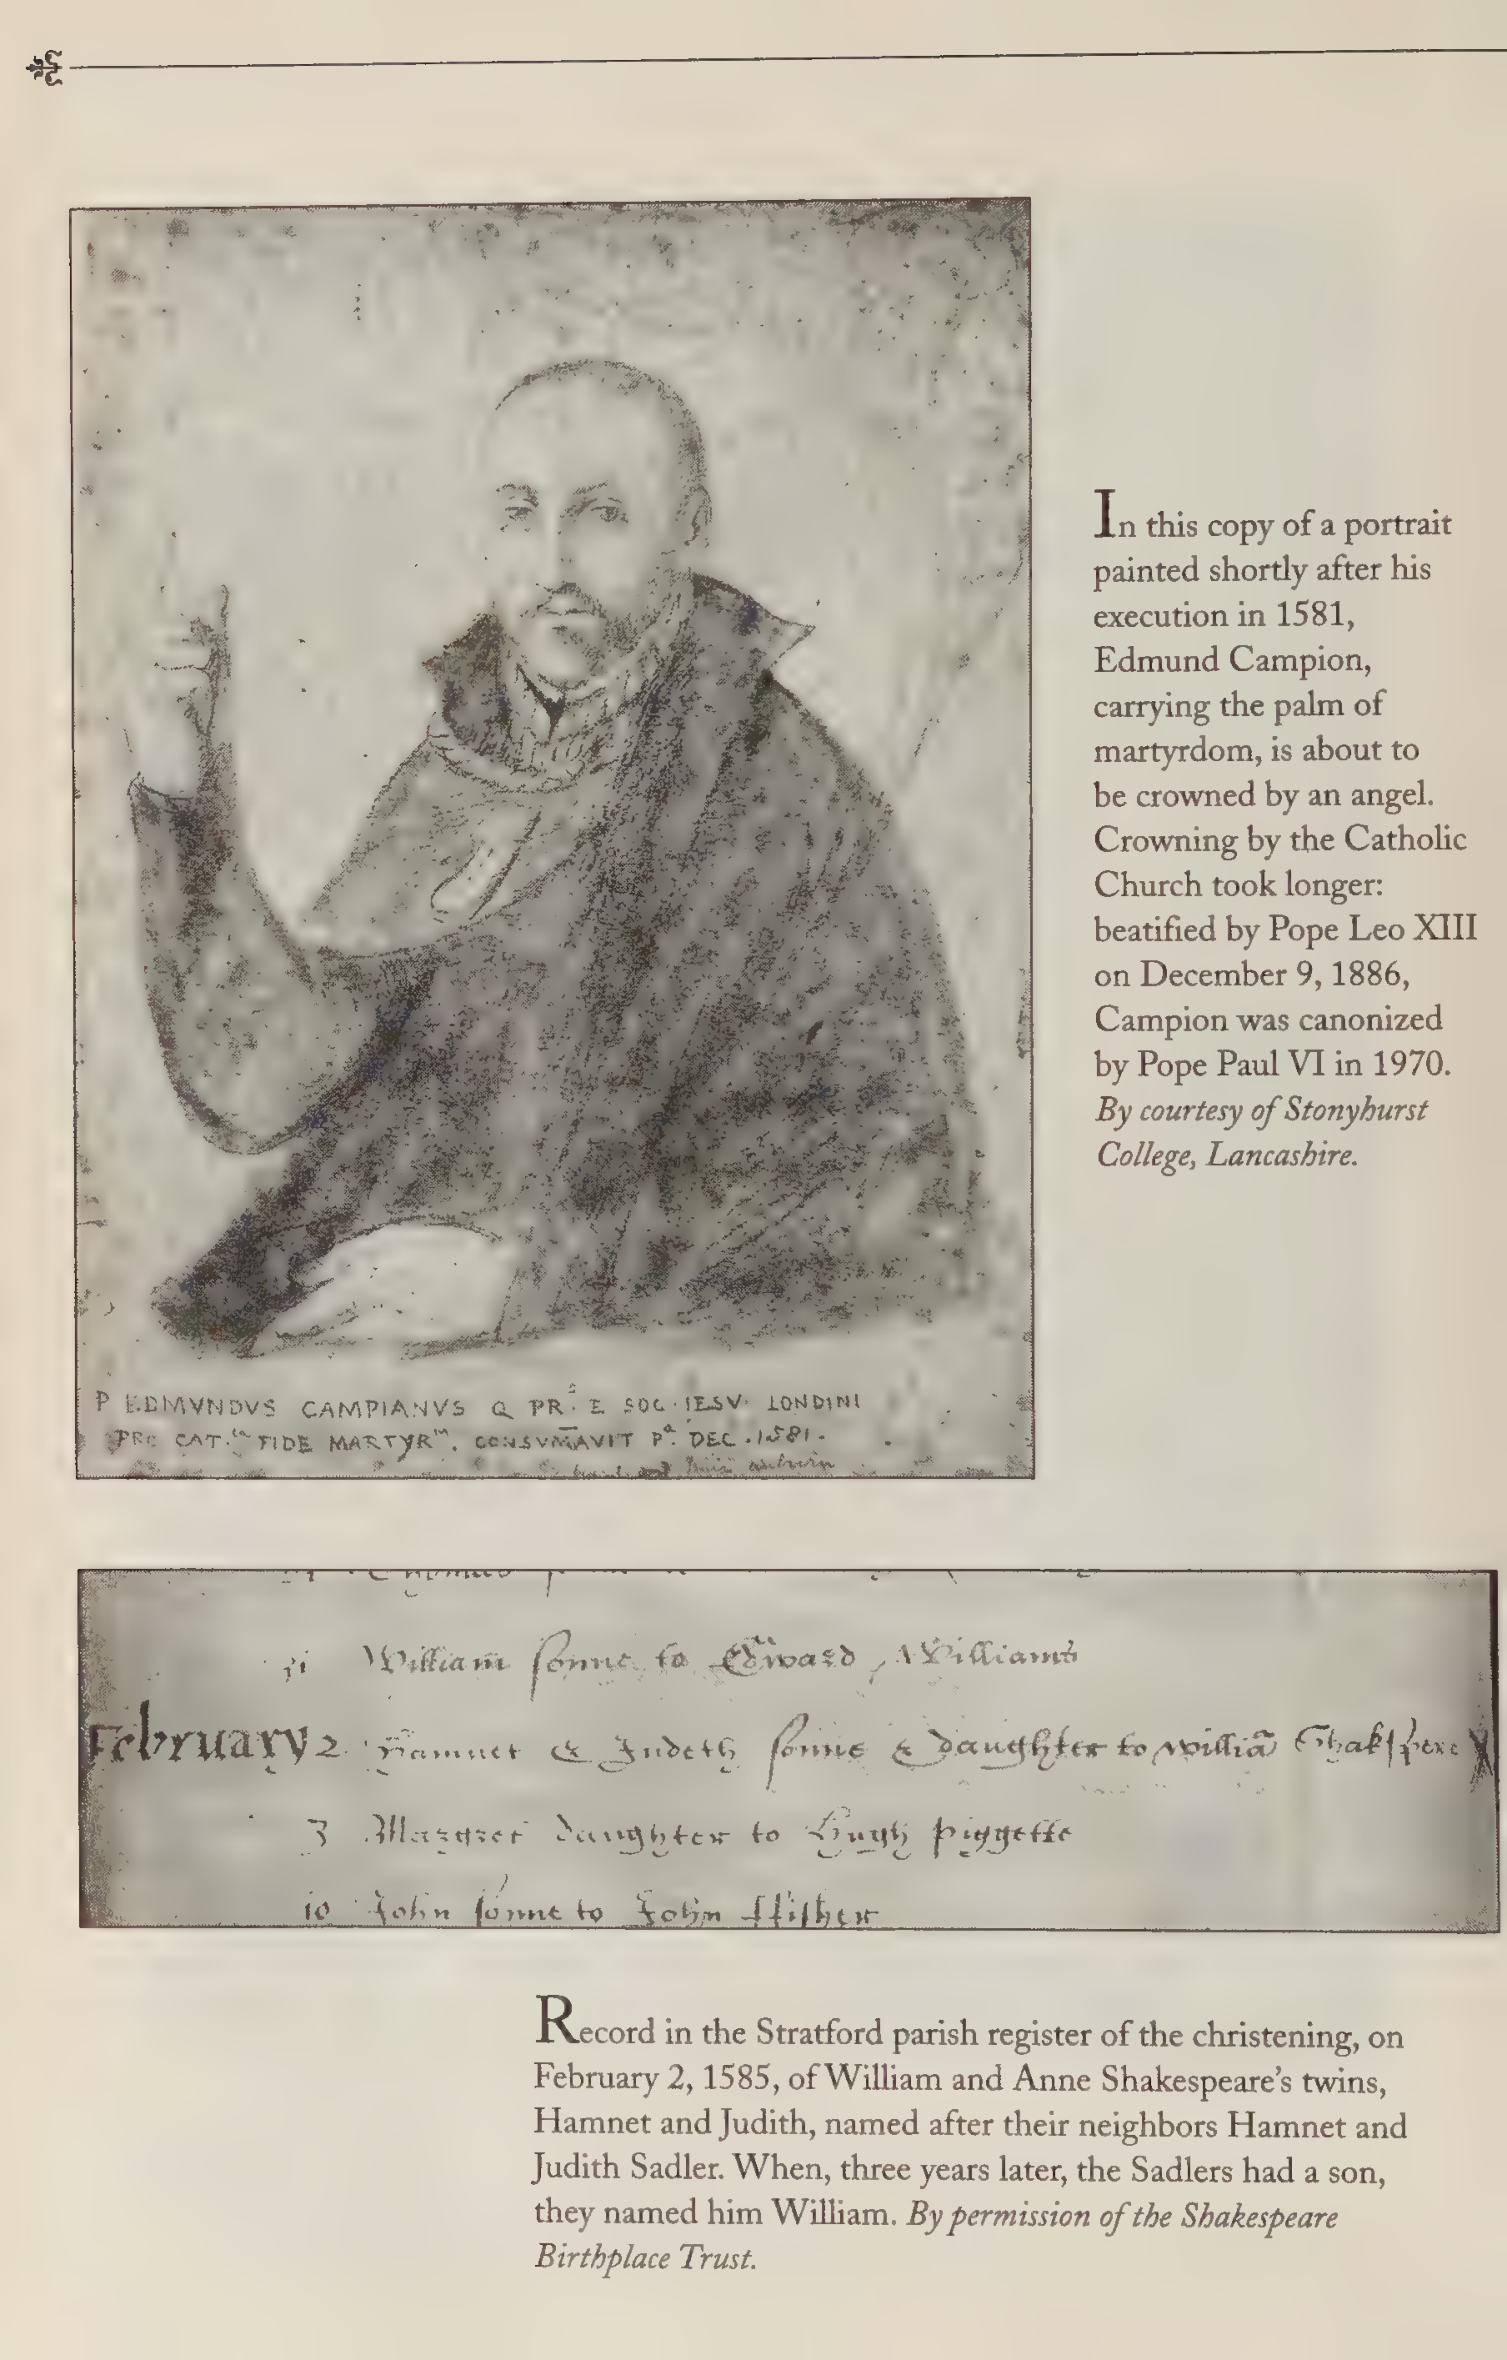 In this copy of a portrait
painted shortly after his
execution in 1581,
Edmund Campion,
carrying the palm of
martyrdom, is about to
be crowned by an angel.
Crowning by the Catholic
Church took longer:
beatified by Pope Leo XIII
on December 9, 1886,
Campion was canonized
by Pope Paul VI in 1970.
By courtesy of Stonyhurst
College, Lancashire.
P EDMVNDVS CAMPIANVS Q PR. E SOC. IESV. LONDINI
PRO CAT. FIDE MARTYRm. CONSVMAVIT Pa. DEC. 1581.
31 William sonne to Edward Williams
February 2 Hamnet & Judeth sonne & daughter to Willia Shakspere
3 Margret daughter to Hugh Piggette
10 John sonne to John ffisher
Record in the Stratford parish register of the christening, on
February 2, 1585, of William and Anne Shakespeare's twins,
Hamnet and Judith, named after their neighbors Hamnet and
Judith Sadler. When, three years later, the Sadlers had a son,
they named him William. By permission of the Shakespeare
Birthplace Trust.